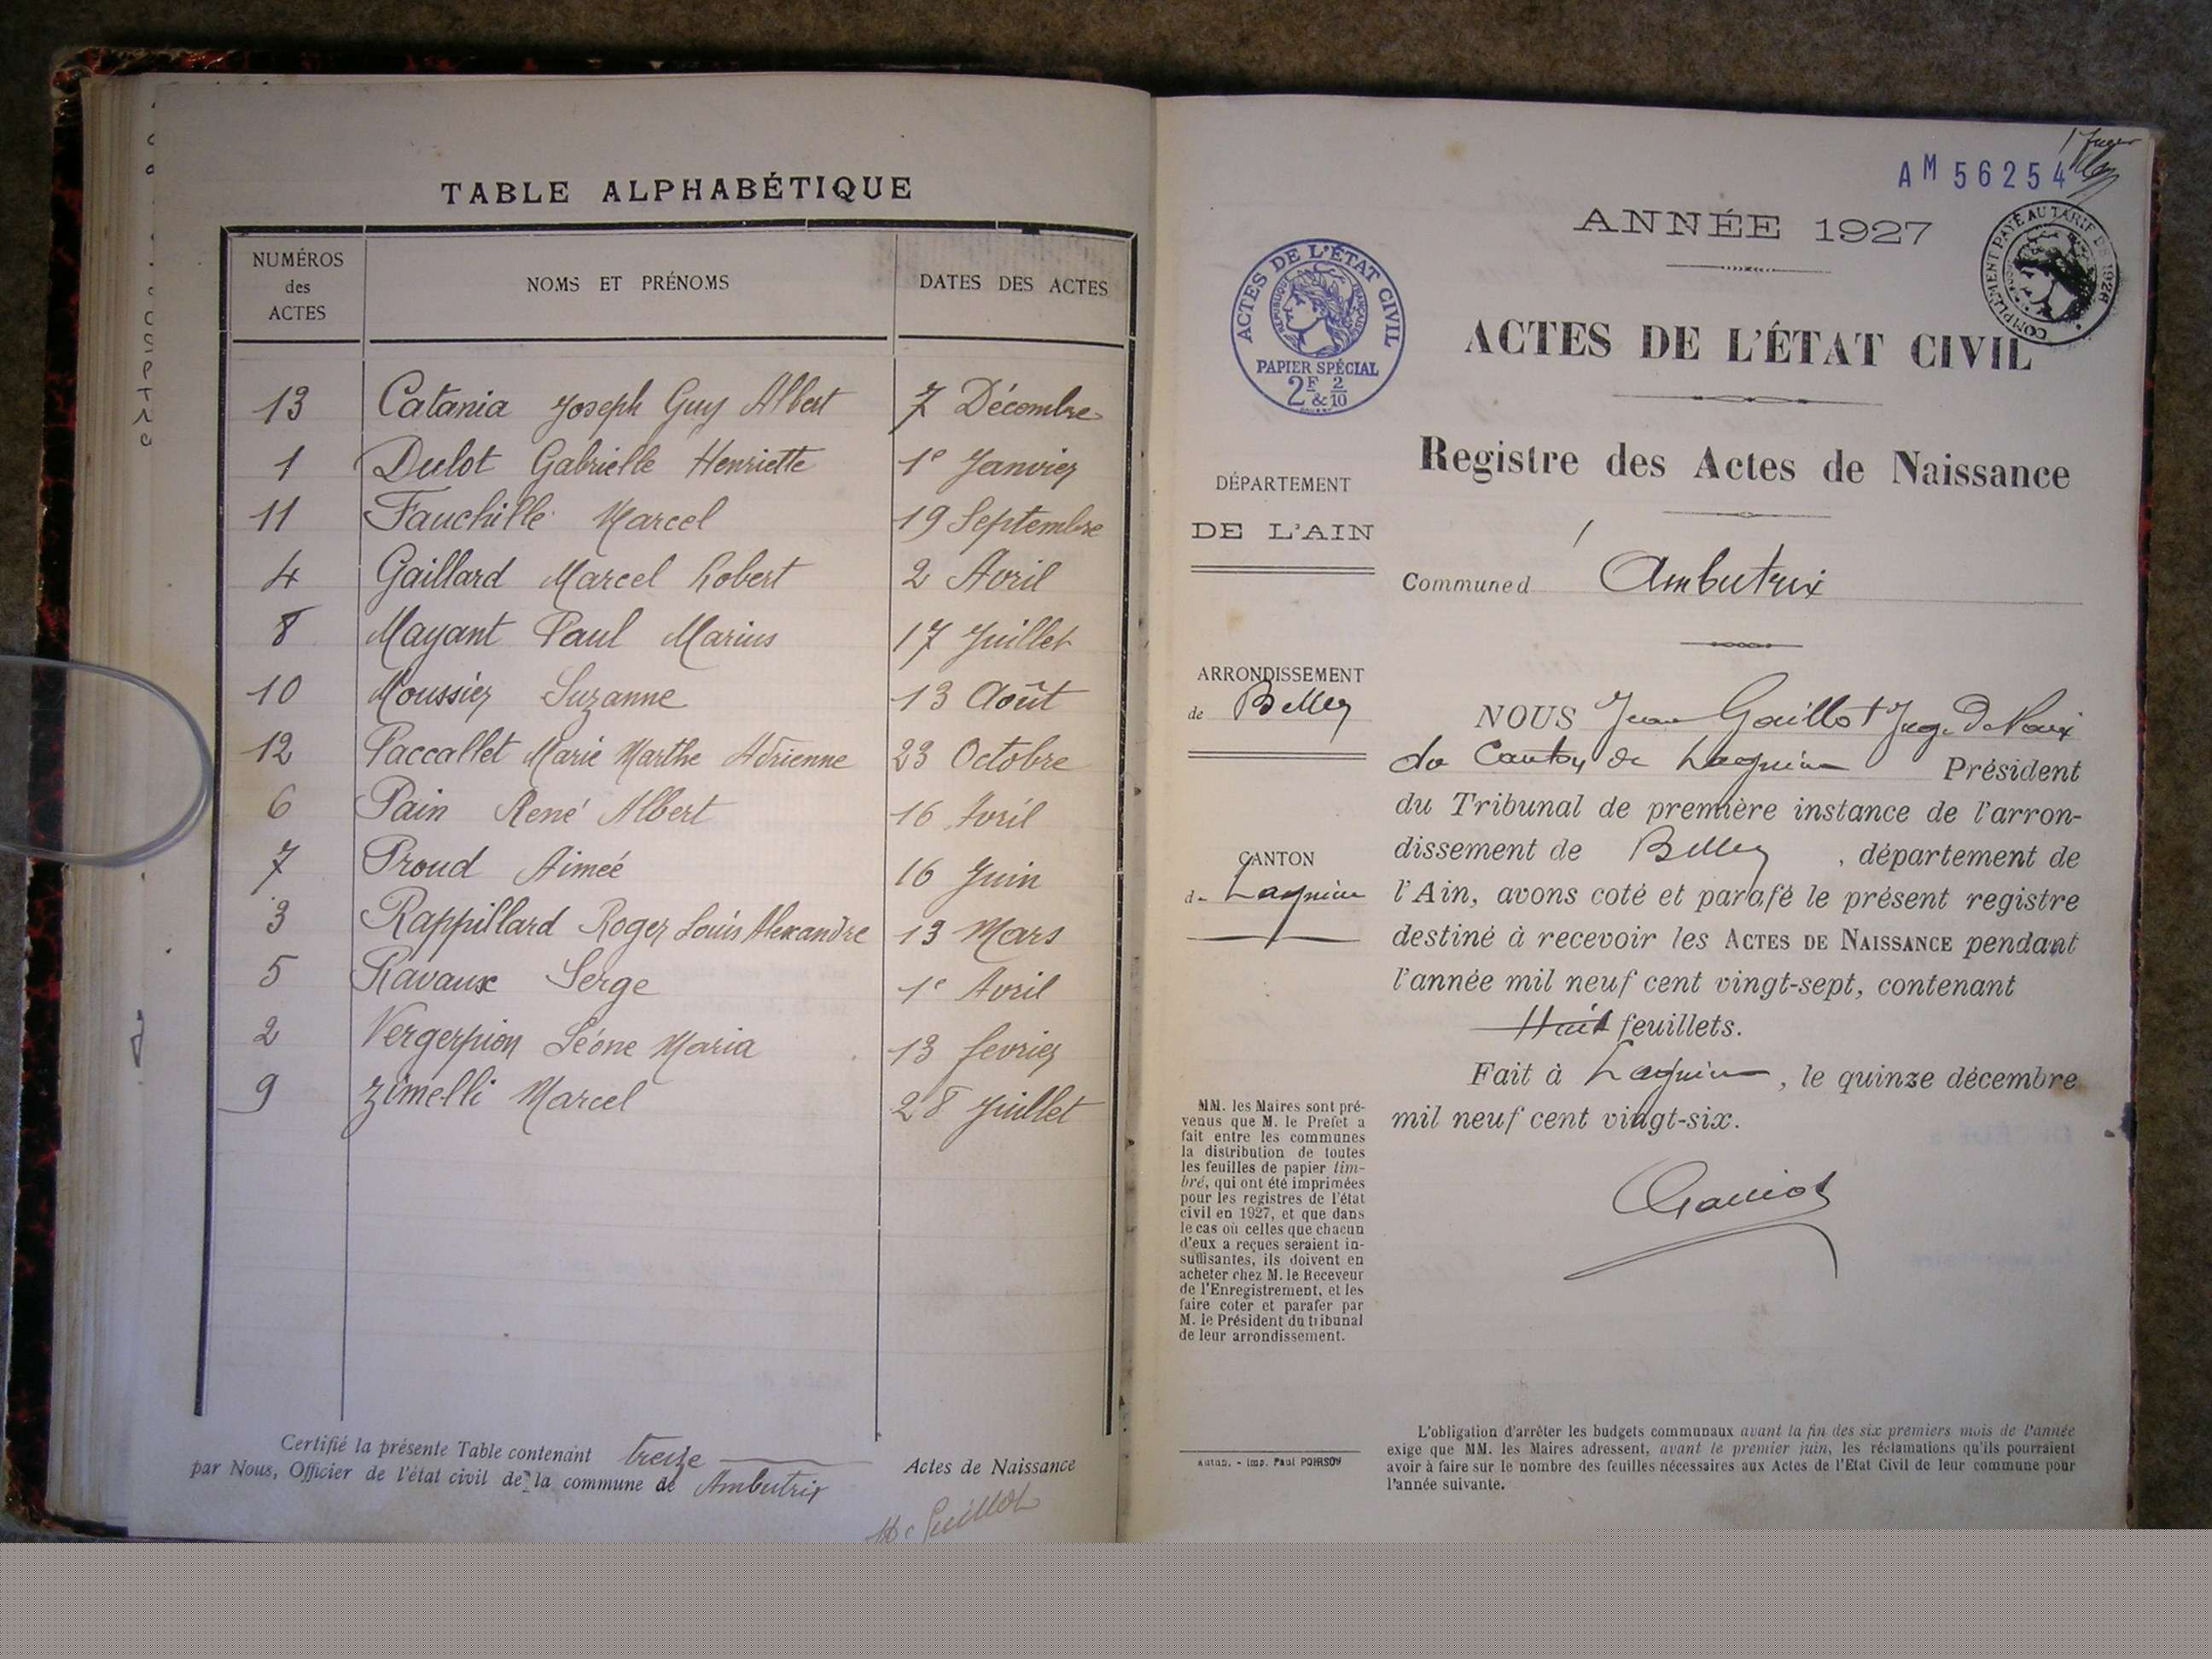 TABLE ALPHABÉTIQUE
NUMÉROS des ACTES NOMS ET PRÉNOMS DATES DES ACTES
13 Catania Joseph Guy Albert 7 Décembre
1 Dulot Gabrielle Henriette 1e Janvier
11 Fauchille Marcel 19 Septembre
4 Gaillard Marcel Robert 2 Avril
8 Mayant Paul Marius 17 Juillet
10 Moussier Suzanne 13 Août
12 Paccallet Marie Marthe Adrienne 23 Octobre
6 Pain René Albert 16 Avril
7 Proud Aimeé 16 Juin
3 Rappillard Roger Louis Alexandre 13 Mars
5 Ravaux Serge 1e Avril
2 Vergerpion Léone Maria 13 fevrier
9 Zimelli Marcel 28 Juillet
Certifié la présente Table contenant treize Actes de Naissance
par Nous, Officier de l'état civil de la commune de Ambutrix
Guillot
AM 56254
ANNÉE 1927
COMPLÉMENT PAYÉ AU TARIF DE 1926
ACTES DE L'ÉTAT CIVIL
RÉPUBLIQUE FRANÇAISE
PAPIER SPÉCIAL
2F & 2/10
ACTES DE L'ÉTAT CIVIL
Registre des Actes de Naissance
DÉPARTEMENT
DE L'AIN
Commune d'Ambutrix
ARRONDISSEMENT
de Belley
CANTON
de Lagnieu
NOUS Jean Gaillot Juge De Paix
du Canton de Lagnieu Président
du Tribunal de première instance de l'arron-
dissement de Belley, département de
l'Ain, avons coté et parafé le présent registre
destiné à recevoir les ACTES DE NAISSANCE pendant
l'année mil neuf cent vingt-sept, contenant
Huit feuillets.
Fait à Lagnieu, le quinze décembre
mil neuf cent vingt-six.
MM. les Maires sont pré-
venus que M. le Préfet a
fait entre les communes
la distribution de toutes
les feuilles de papier tim-
bré, qui ont été imprimées
pour les registres de l'état
civil en 1927, et que dans
le cas où celles que chacun
d'eux a reçues seraient in-
suffisantes, ils doivent en
acheter chez M. le Receveur
de l'Enregistrement, et les
faire coter et parafer par
M. le Président du tribunal
de leur arrondissement.
Autun. - Imp. Paul POIRSON
L'obligation d'arrêter les budgets communaux avant la fin des six premiers mois de l'année
exige que MM. les Maires adressent, avant le premier juin, les réclamations qu'ils pourraient
avoir à faire sur le nombre des feuilles nécessaires aux Actes de l'Etat Civil de leur commune pour
l'année suivante.